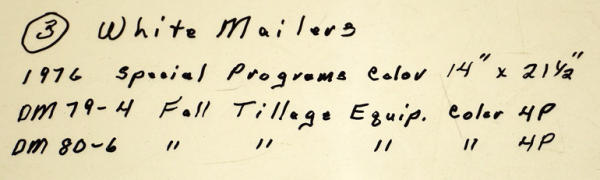 ③ White Mailers
1976 Special Programs Color 14" x 21½"
DM 79-4 Fall Tillage Equip. Color 4P
DM 80-6 " " " " 4P